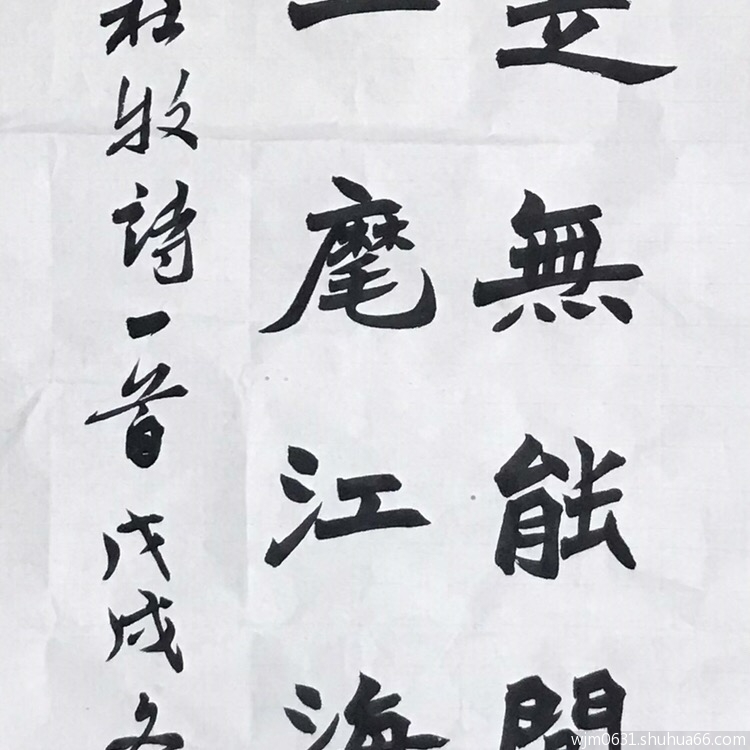 是無能
一麾江海
杜牧詩一首戊戌冬
wjm0631.shuhua66.com